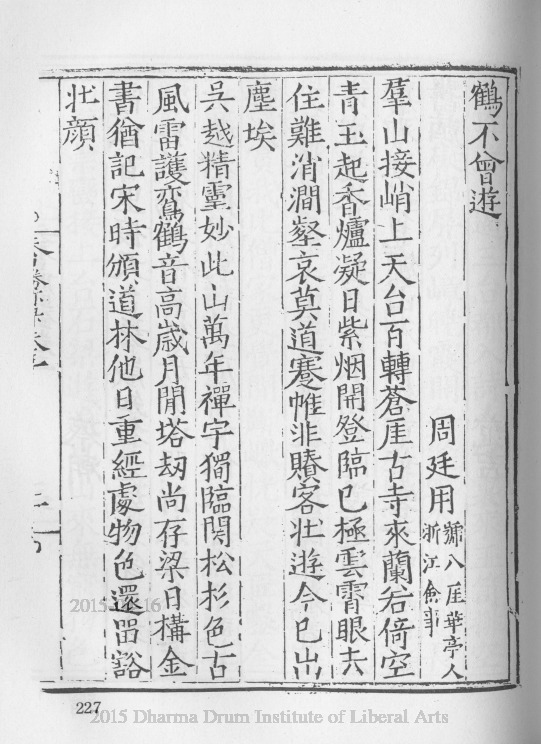 鶴不會遊
周廷用 號八厓華亭人
浙江僉事
羣山接峭上天台百轉蒼厓古寺來蘭若倚空
青玉起香爐凝日紫烟開登臨已極雲霄眼去
住難消澗壑哀莫道蹇帷非賸客壯遊今已出
塵埃
吳越精靈妙此山萬年禪宇獨臨関松杉色古
風雷護鸞鶴音高歲月閒塔刼尚存梁日構金
書猶記宋時頒道林他日重經處物色還畱豁
壯顔
227
2015 Dharma Drum Institute of Liberal Arts